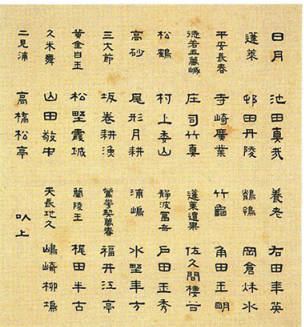 日月 池田真哉 養老 右田年英
蓬莱 邨田丹陵 鶺鴒 岡倉秋水
平安長春 寺崎廣業 竹龜 角田
徳若五萬歳 庄司竹真 蓬莱 佐久間棲谷
松鶴 村上委山 静波富岳 戸田玉秀
高砂 尾形月耕 浦嶋 水野年方
三大節 坂巻耕漁 萬春 福井江亭
黄金白玉 松野霞城 蘭陵王 梶田半古
久米舞 山田敬中 天長地久 嶋崎柳塢
二見浦 高橋松亭 以上